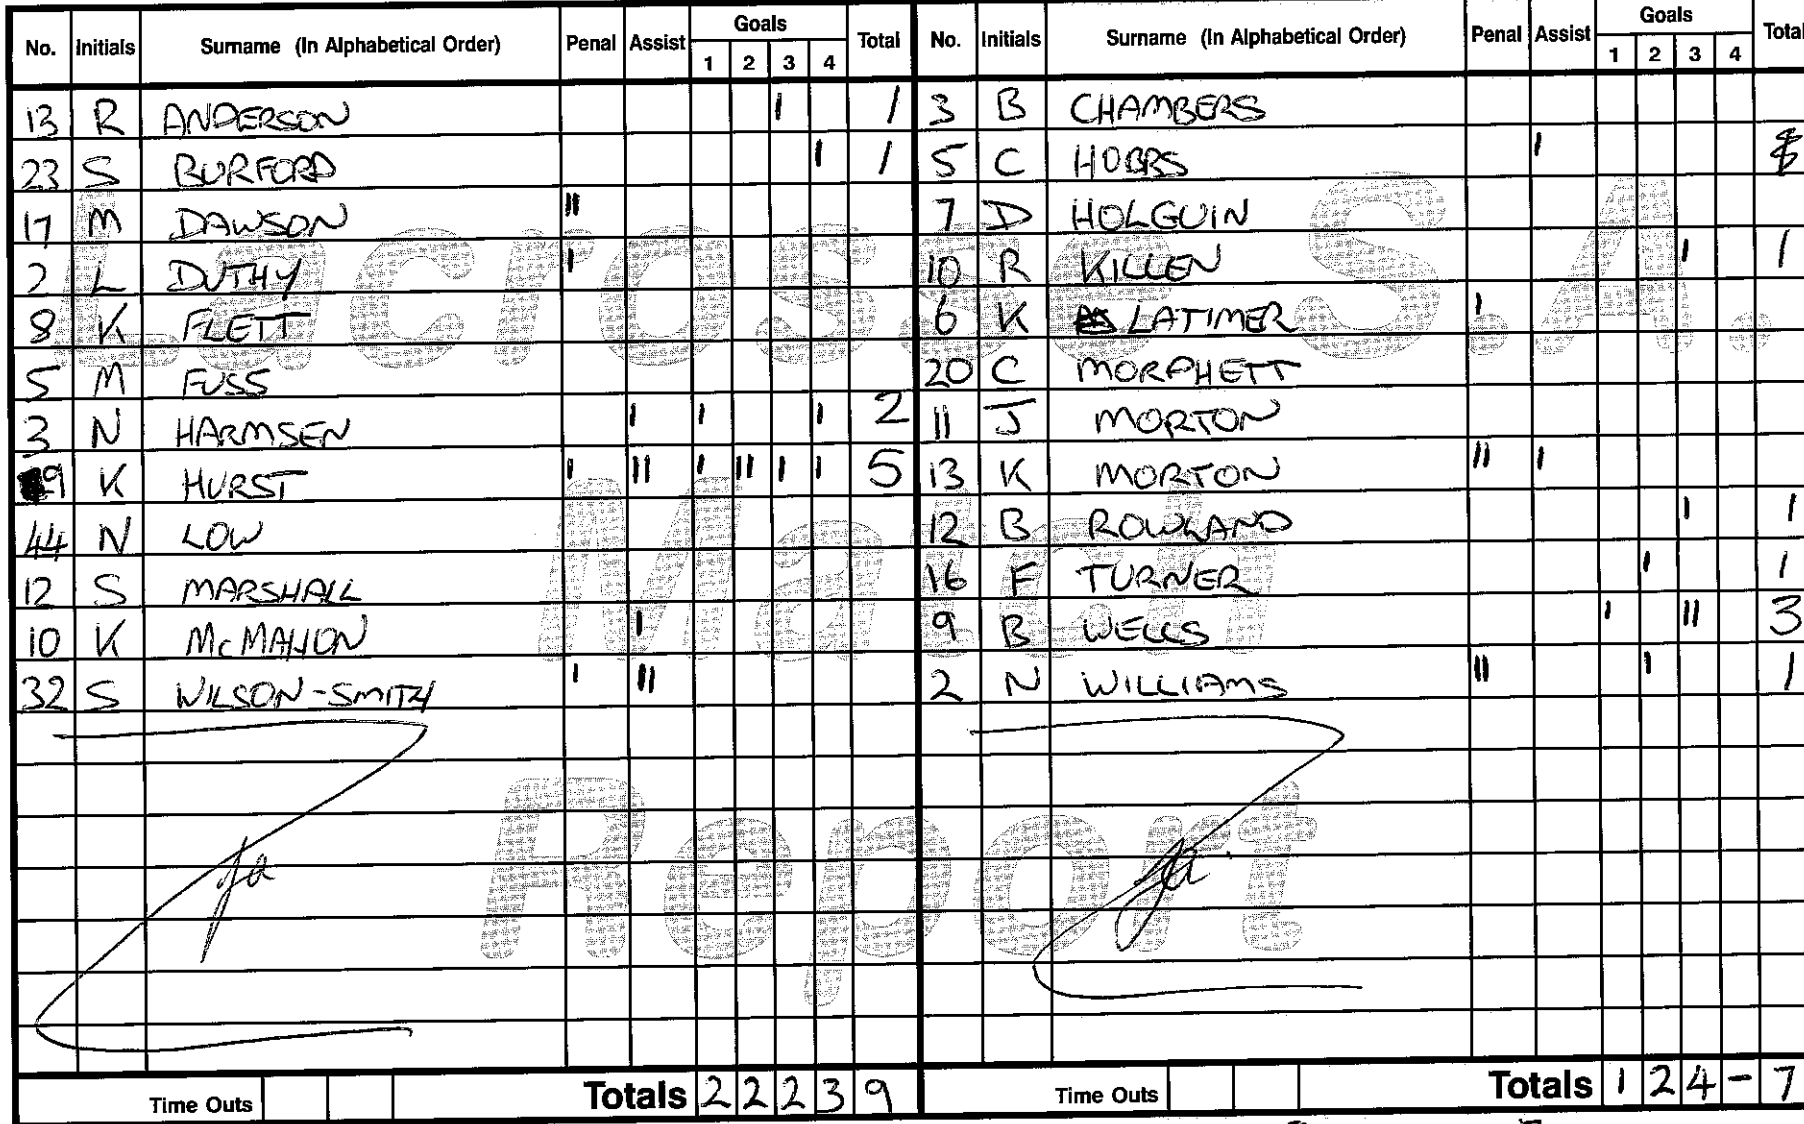 No. Initials Surname (In Alphabetical Order) Penal Assist Goals 1 2 3 4 Total
13 R ANDERSON I 1
23 S BURFORD I 1
17 M DAWSON II
2 L DUTHY I
8 K FLETT
5 M FUSS
3 N HARMSEN I I I 2
9 K HURST I II I II I I 5
44 N LOW
12 S MARSHALL
10 K McMAHON I
32 S WILSON-SMITH I II
Time Outs Totals 2 2 2 3 9
No. Initials Surname (In Alphabetical Order) Penal Assist Goals 1 2 3 4 Total
3 B CHAMBERS
5 C HOBBS I
7 D HOLGUIN
10 R KILLEN I 1
6 K LATIMER I
20 C MORPHETT
11 J MORTON
13 K MORTON II I
12 B ROWLAND I 1
16 F TURNER I 1
9 B WELLS I II 3
2 N WILLIAMS II I 1
Time Outs Totals 1 2 4 - 7
Lacrosse S.A.
Match
Report